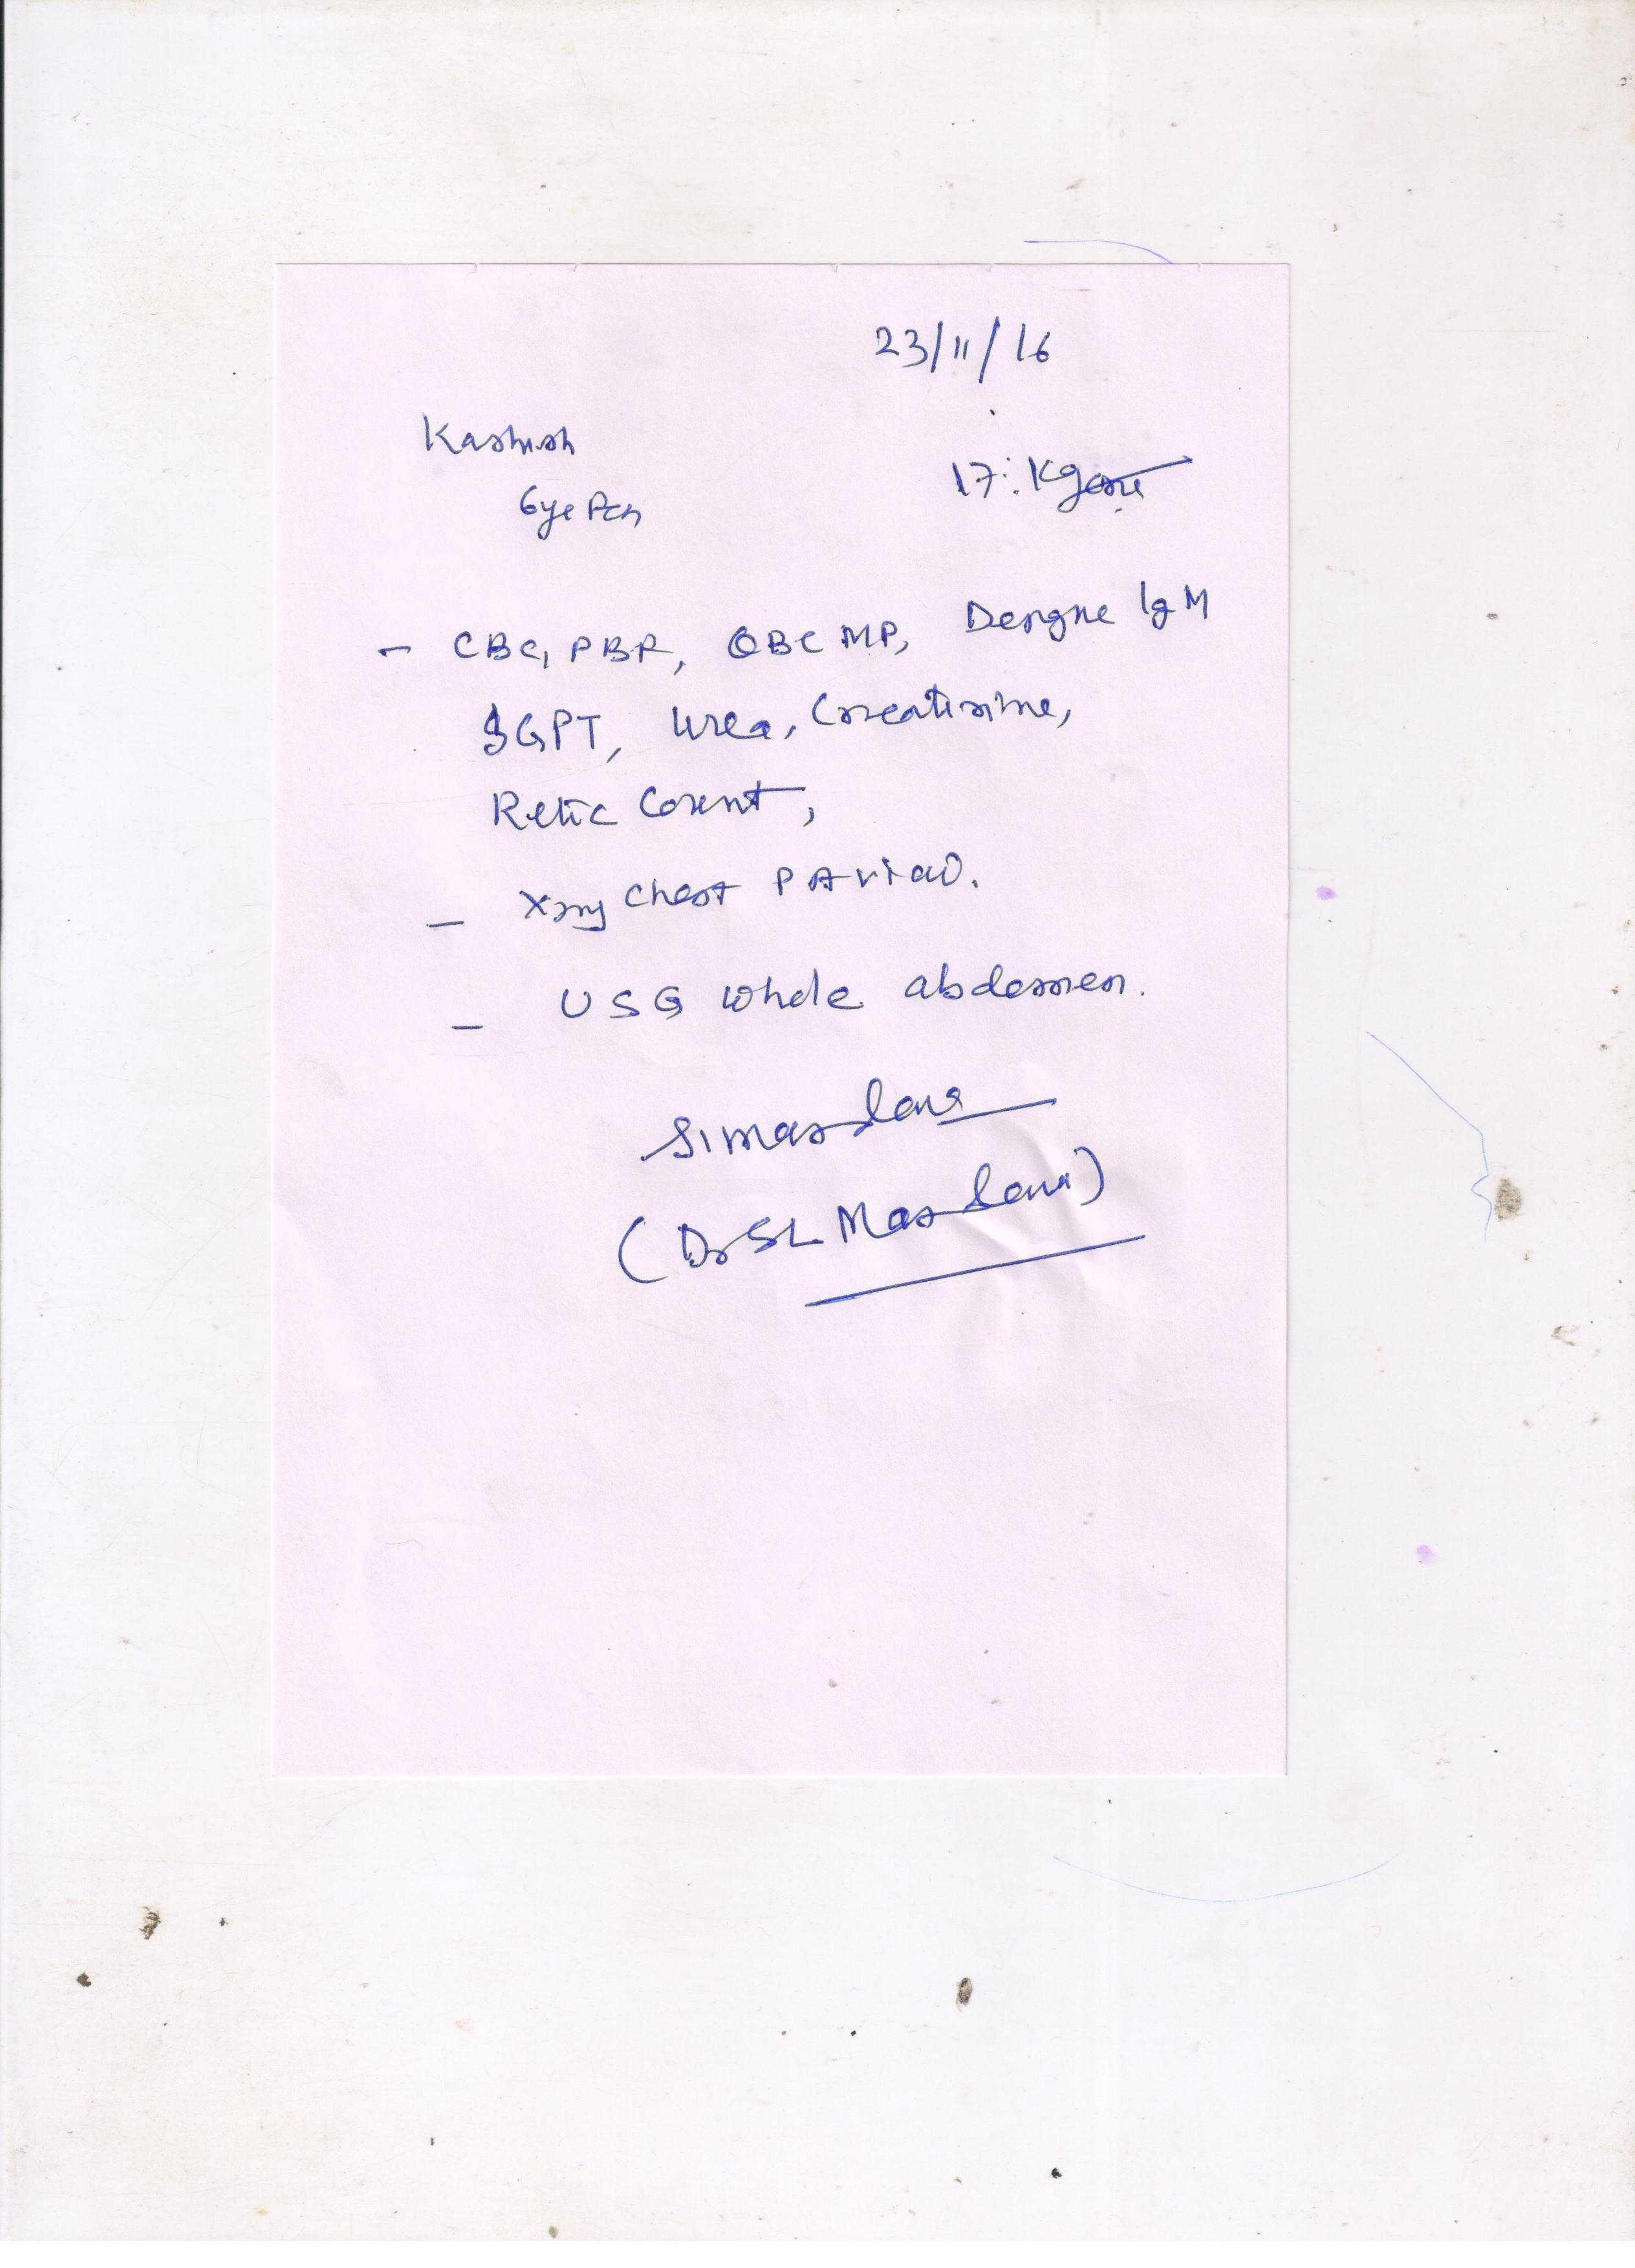 23/11/16
Kashish
17. Kg
6ye Fch
- CBC, PBF, QBC MP, Dengue IgM
SGPT, Urea, Creatinine,
Retic Count,
- Xray Chest PA view.
- USG Whole abdomen.
(Dr SL